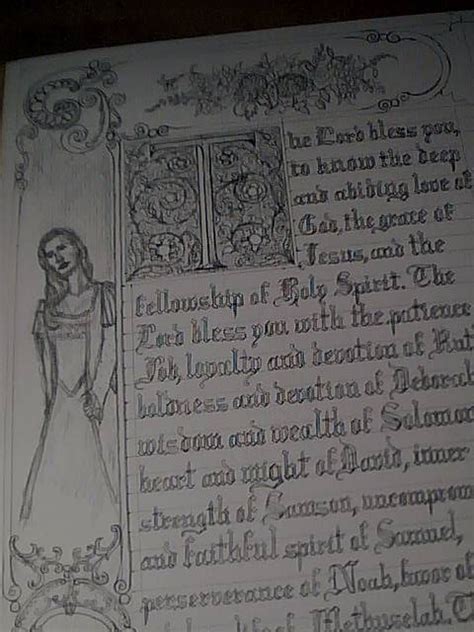 The Lord bless you,
to know the deep
and abiding love of
God, the grace of
Jesus, and the
fellowship of Holy Spirit. The
Lord bless you with the patience
Job, loyalty and devotion of Rut
boldness and devotion of Deborah
wisdom and wealth of Solomon
heart and might of David, inner
strength of Samson, uncomprom
and faithful spirit of Samuel,
perserverance of Noah, favor of
of Methuselah. T